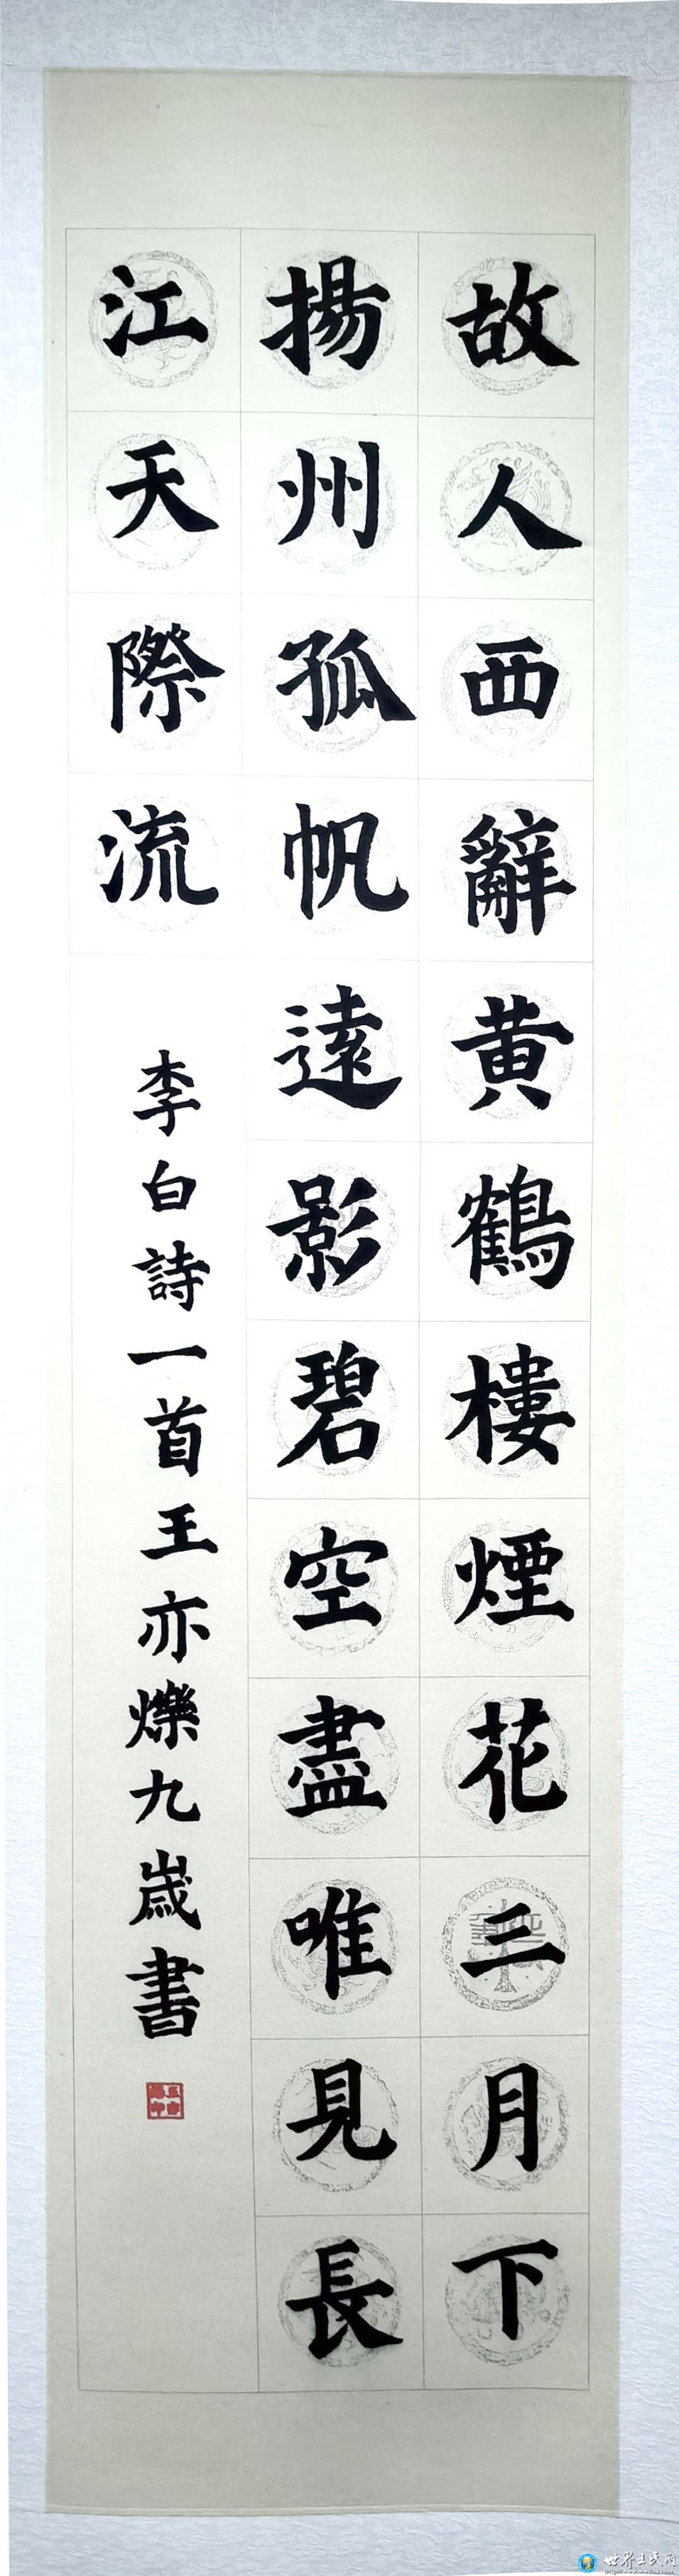 故人西辭黄鶴樓煙花三月下
揚州孤帆遠影碧空盡唯見長
江天際流
李白詩一首王亦爍九歲書
世界王氏网